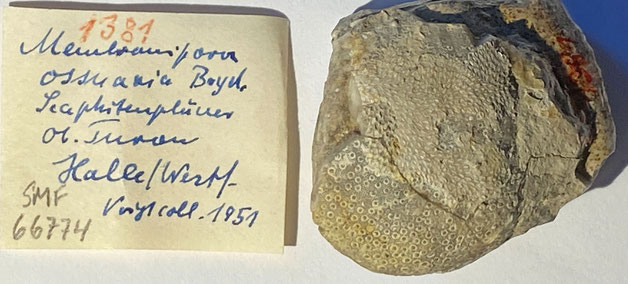 1381
Membranipora
ossuaria Beyd.
Scaphitenpläner
ob. Turon
Halle/Westf.
Voigt coll. 1951
SMF
66774